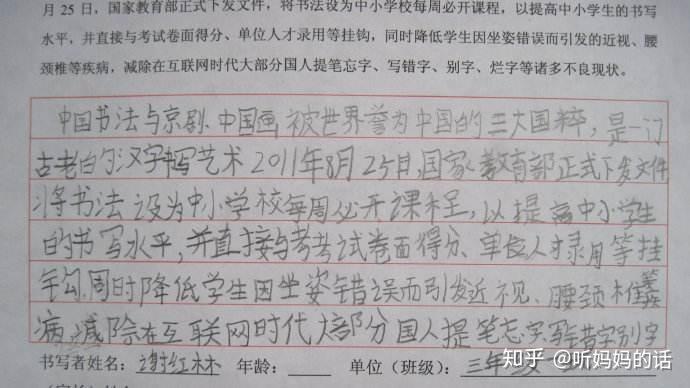 月 25 日，国家教育部正式下发文件，将书法设为中小学校每周必开课程，以提高中小学生的书写
水平，并直接与考试卷面得分、单位人才录用等挂钩，同时降低学生因坐姿错误而引发的近视、腰
颈椎等疾病，减除在互联网时代大部分国人提笔忘字、写错字、别字、烂字等诸多不良现状。
中国书法与京剧、中国画被世界誉为中国的三大国粹，是一门
古老的汉字书写艺术 2011年8月25日，国家教育部正式下发文件
将书法设为中小学校每周必开课程，以提高中小学生
的书写水平，并直接与考考试卷面得分、单位人才录用等挂
钩，同时降低学生因坐姿错误而引发近视、腰颈椎等疾
病，减除在互联网时代大部分国人提笔忘字写错字别字
书写者姓名：谢红林 年龄： 单位（班级）：三年
知乎 @听妈妈的话